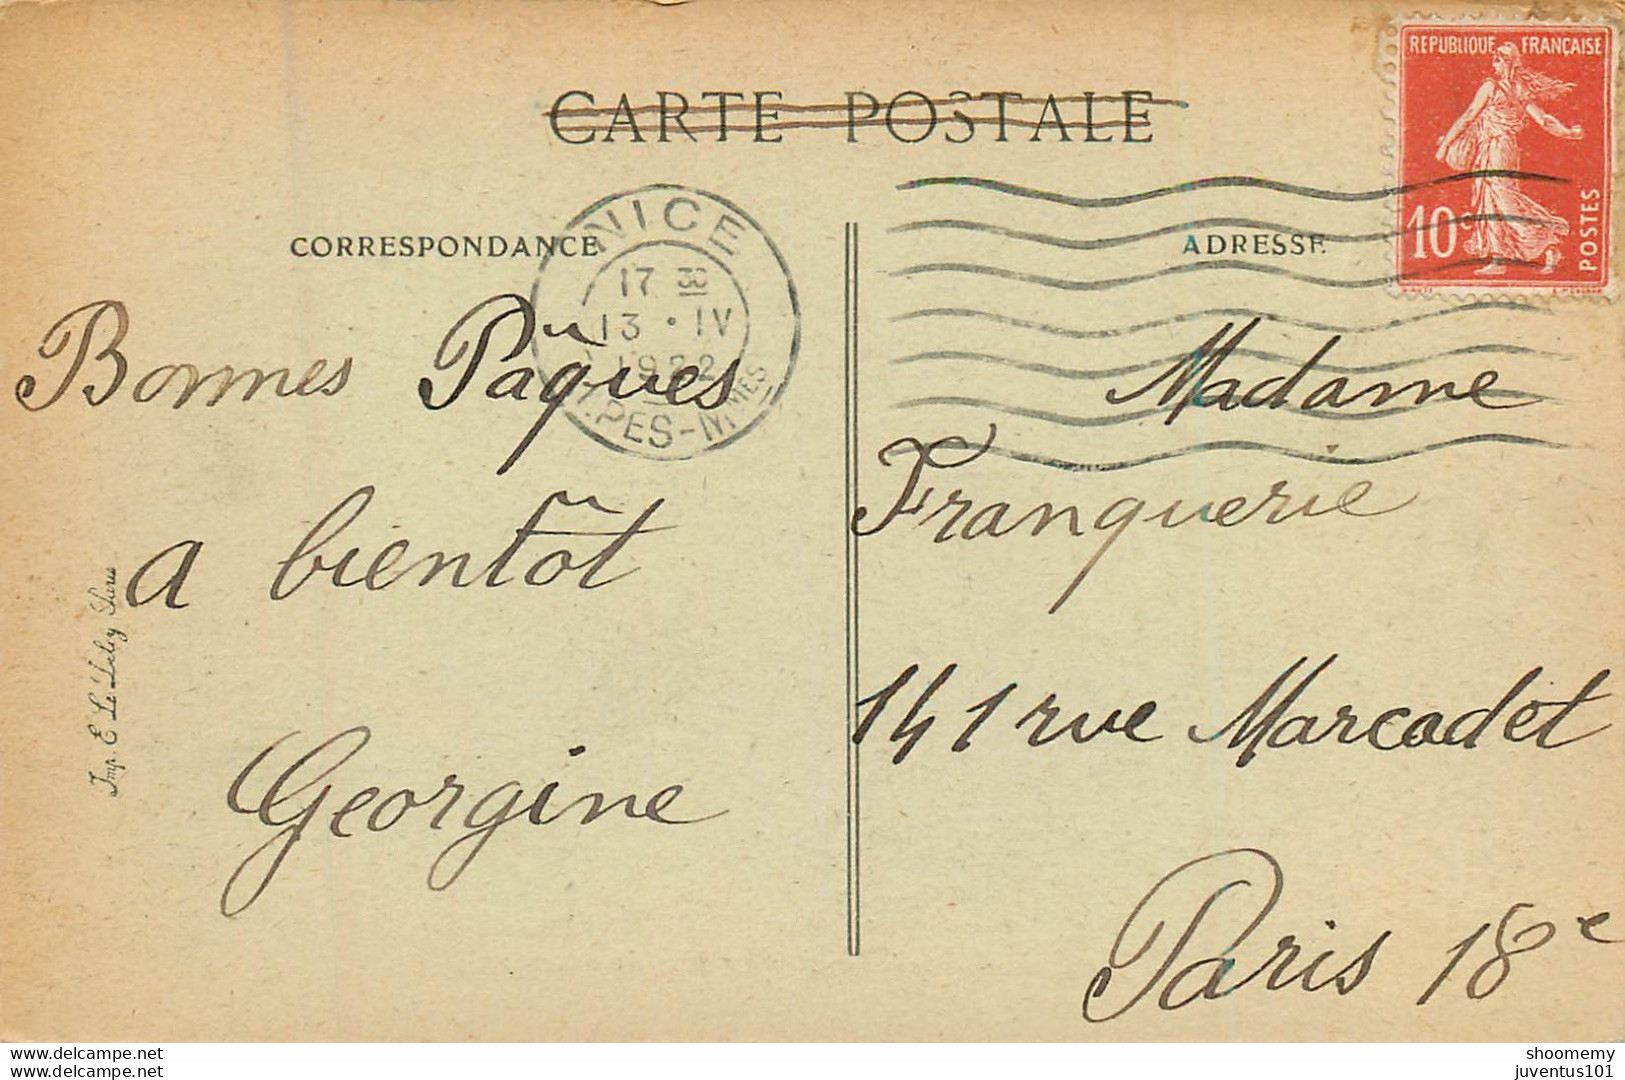 CARTE POSTALE
REPUBLIQUE FRANÇAISE
10c
POSTES
CORRESPONDANCE
ADRESSE
NICE
17 30
13 · IV
1922
PES-MMES
Bonnes Pâques
a bientôt
Georgine
Madame
Franquerie
141 rue Marcadet
Paris 18e
Imp. E Le Deley Paris
www.delcampe.net
www.delcampe.net
shoomemy
juventus101